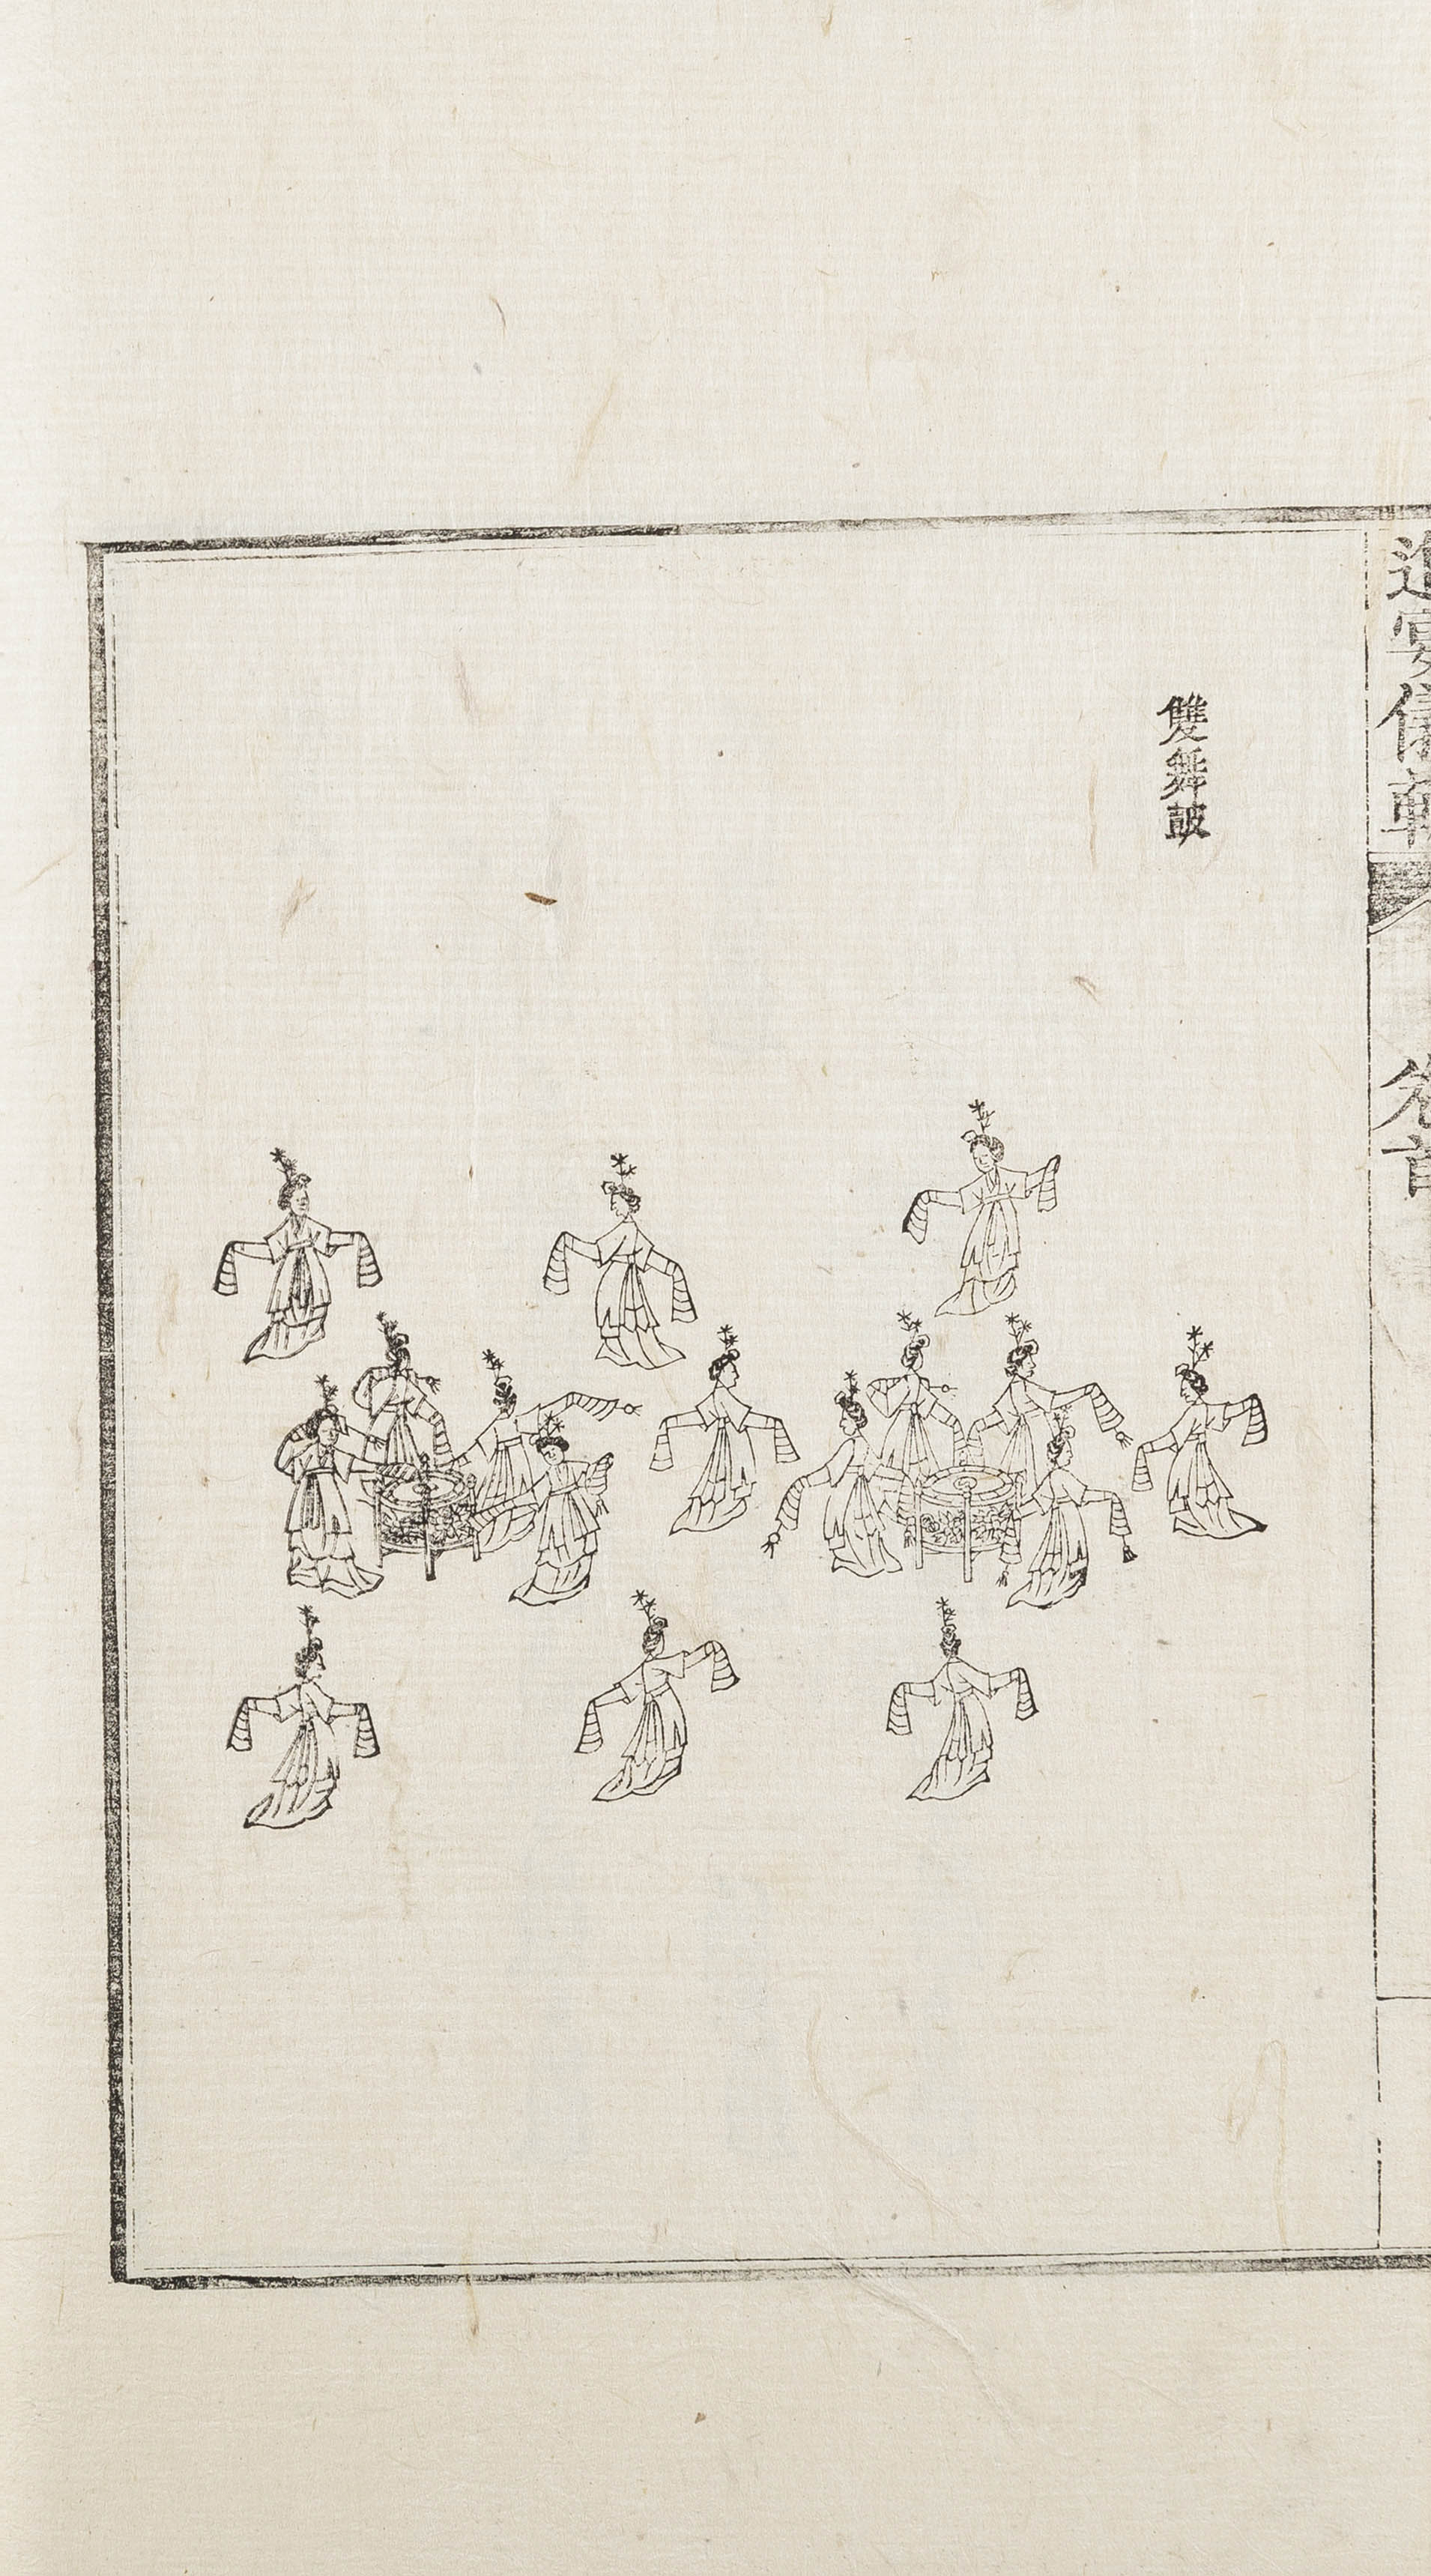 進宴儀軌
卷首
雙舞皷